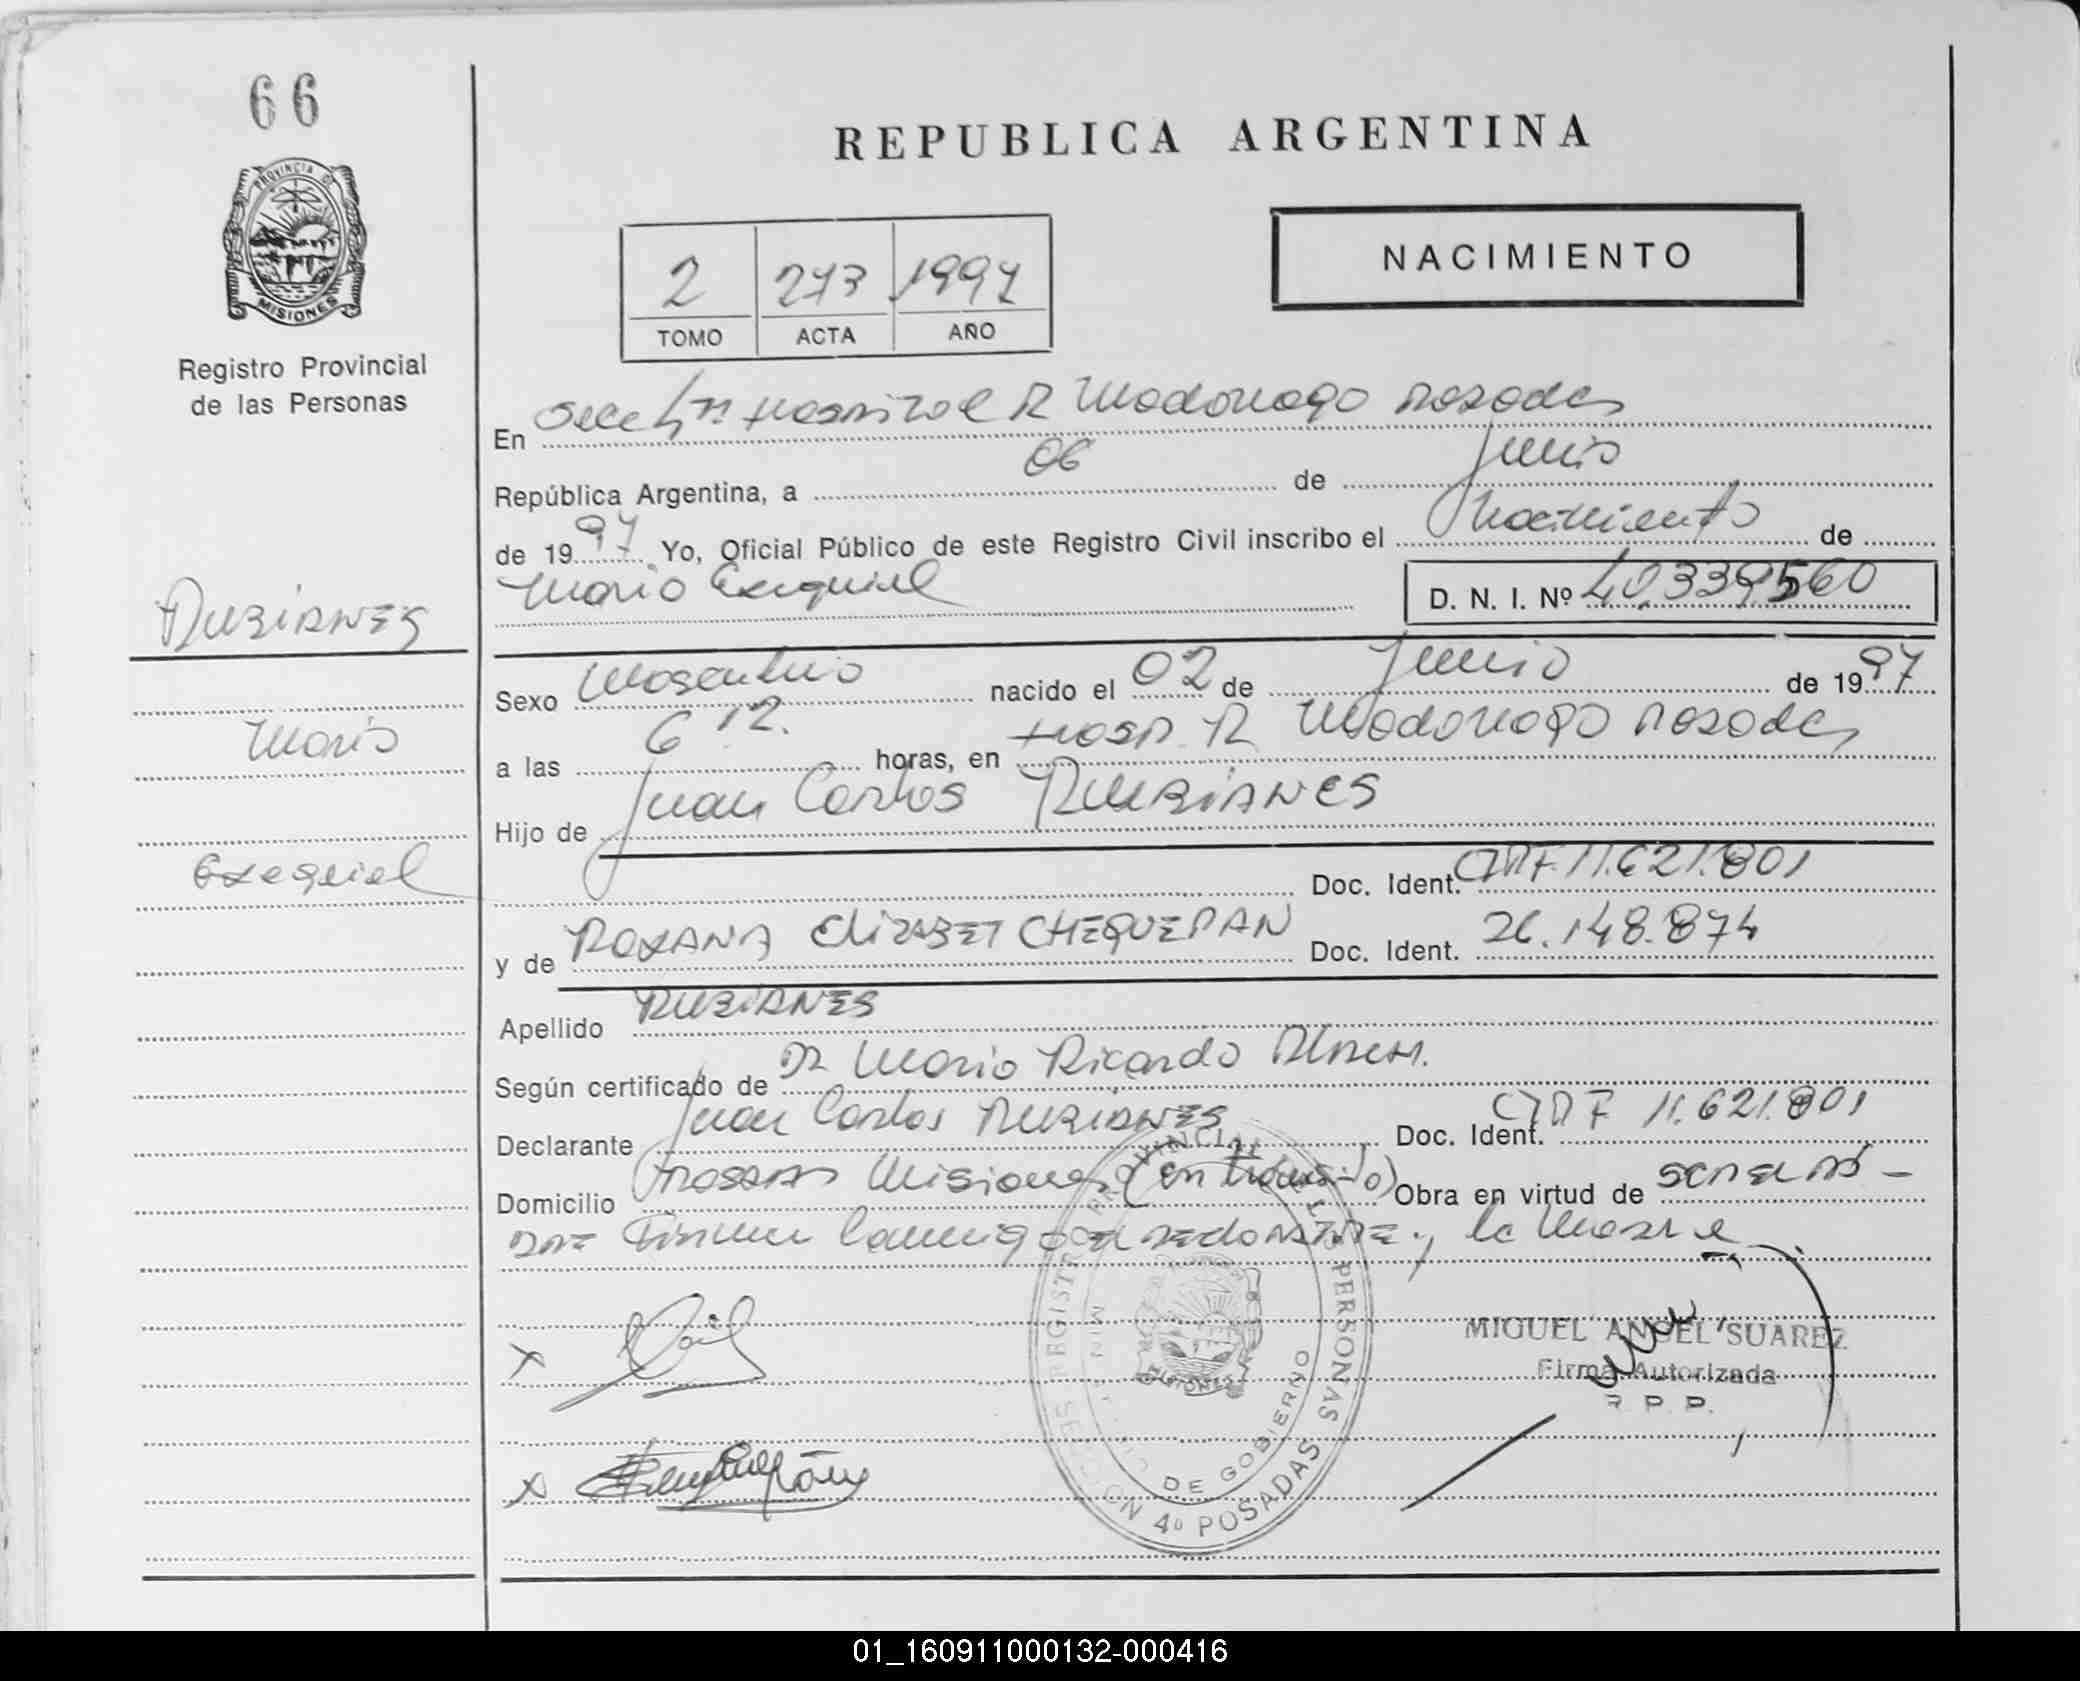 66
PROVINCIA DE
MISIONES
Registro Provincial
de las Personas
REPUBLICA ARGENTINA
NACIMIENTO
2 273 1997
TOMO ACTA AÑO
En Secc 4ta Hospital R Madariaga Posadas
República Argentina, a 06 de Junio
de 1997 Yo, Oficial Público de este Registro Civil inscribo el Nacimiento de
Mario Exequiel D. N. I. Nº 40.339.560
Sexo Masculino nacido el 02 de Junio de 1997
a las 6 12. horas, en Hosp. R Madariaga Posadas
Hijo de Juan Carlos
Doc. Ident. 11.621.801
y de ROXANA ELIZABET CHEQUEPAN Doc. Ident. 26.148.874
Apellido
Según certificado de Dr Mario Ricardo
Declarante Juan Carlos Doc. Ident. 11.621.801
Domicilio Posadas Misiones (en transito) Obra en virtud de
Firman conmigo el declarante y la Madre
Mario
Exequiel
REGISTRO PROVINCIAL DE LAS PERSONAS
MINISTERIO DE GOBIERNO
MISIONES
SECCION 4º POSADAS
MIGUEL ANGEL SUAREZ
Firma Autorizada
R. P. P.
x
x
01_160911000132-000416